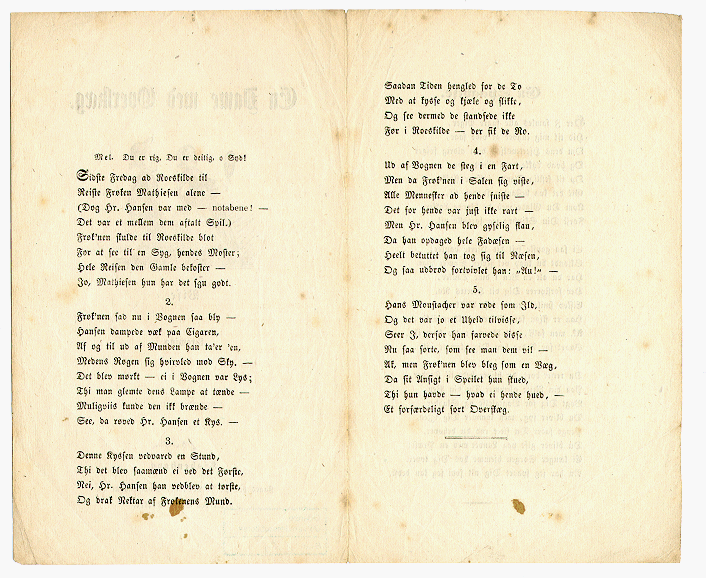 Mel. Du er rig, Du er deilig, o Syd!
Sidste Fredag ad Roeskilde til
Reiste Frøken Mathiesen alene —
(Dog Hr. Hansen var med — notabene! —
Det var et mellem dem aftalt Spil.)
Frøk'nen skulde til Roeskilde blot
For at see til en Syg, hendes Moster;
Hele Reisen den Gamle bekoster —
Jo, Mathiesen hun har det sgu godt.
2.
Frøk'nen sad nu i Vognen saa bly —
Hansen dampede væk paa Cigaren,
Af og til ud af Munden han ta'er 'en,
Medens Røgen sig hvirvled mod Sky. —
Det blev mørkt — ei i Vognen var Lys;
Thi man glemte dens Lampe at tænde —
Muligviis kunde den ikk brænde —
See, da røved Hr. Hansen et Kys. —
3.
Denne Kyssen vedvared en Stund,
Thi det blev saamænd ei ved det Første,
Nei, Hr. Hansen han vedblev at tørste,
Og drak Nektar af Frøkenens Mund.
Saadan Tiden hengled for de To
Med at kysse og kjæle og slikke,
Og see dermed de standsede ikke
Før i Roeskilde — der fik de Ro.
4.
Ud af Vognen de steg i en Fart,
Men da Frøk'nen i Salen sig viste,
Alle Mennesker ad hende fniste —
Det for hende var just ikke rart —
Men Hr. Hansen blev gyselig flau,
Da han opdaged hele Fadæsen —
Heelt betuttet han tog sig til Næsen,
Og saa udbrød fortvivlet han: „Au!" —
5.
Hans Moustacher var røde som Ild,
Og det var jo et Uheld tilvisse,
Seer I, derfor han farvede disse
Nu saa sorte, som see man dem vil —
Ak, men Frøk'nen blev bleg som en Væg,
Da sit Ansigt i Speilet hun skued,
Thi hun havde — hvad ei hende hued, —
Et forfærdeligt sort Overskæg.